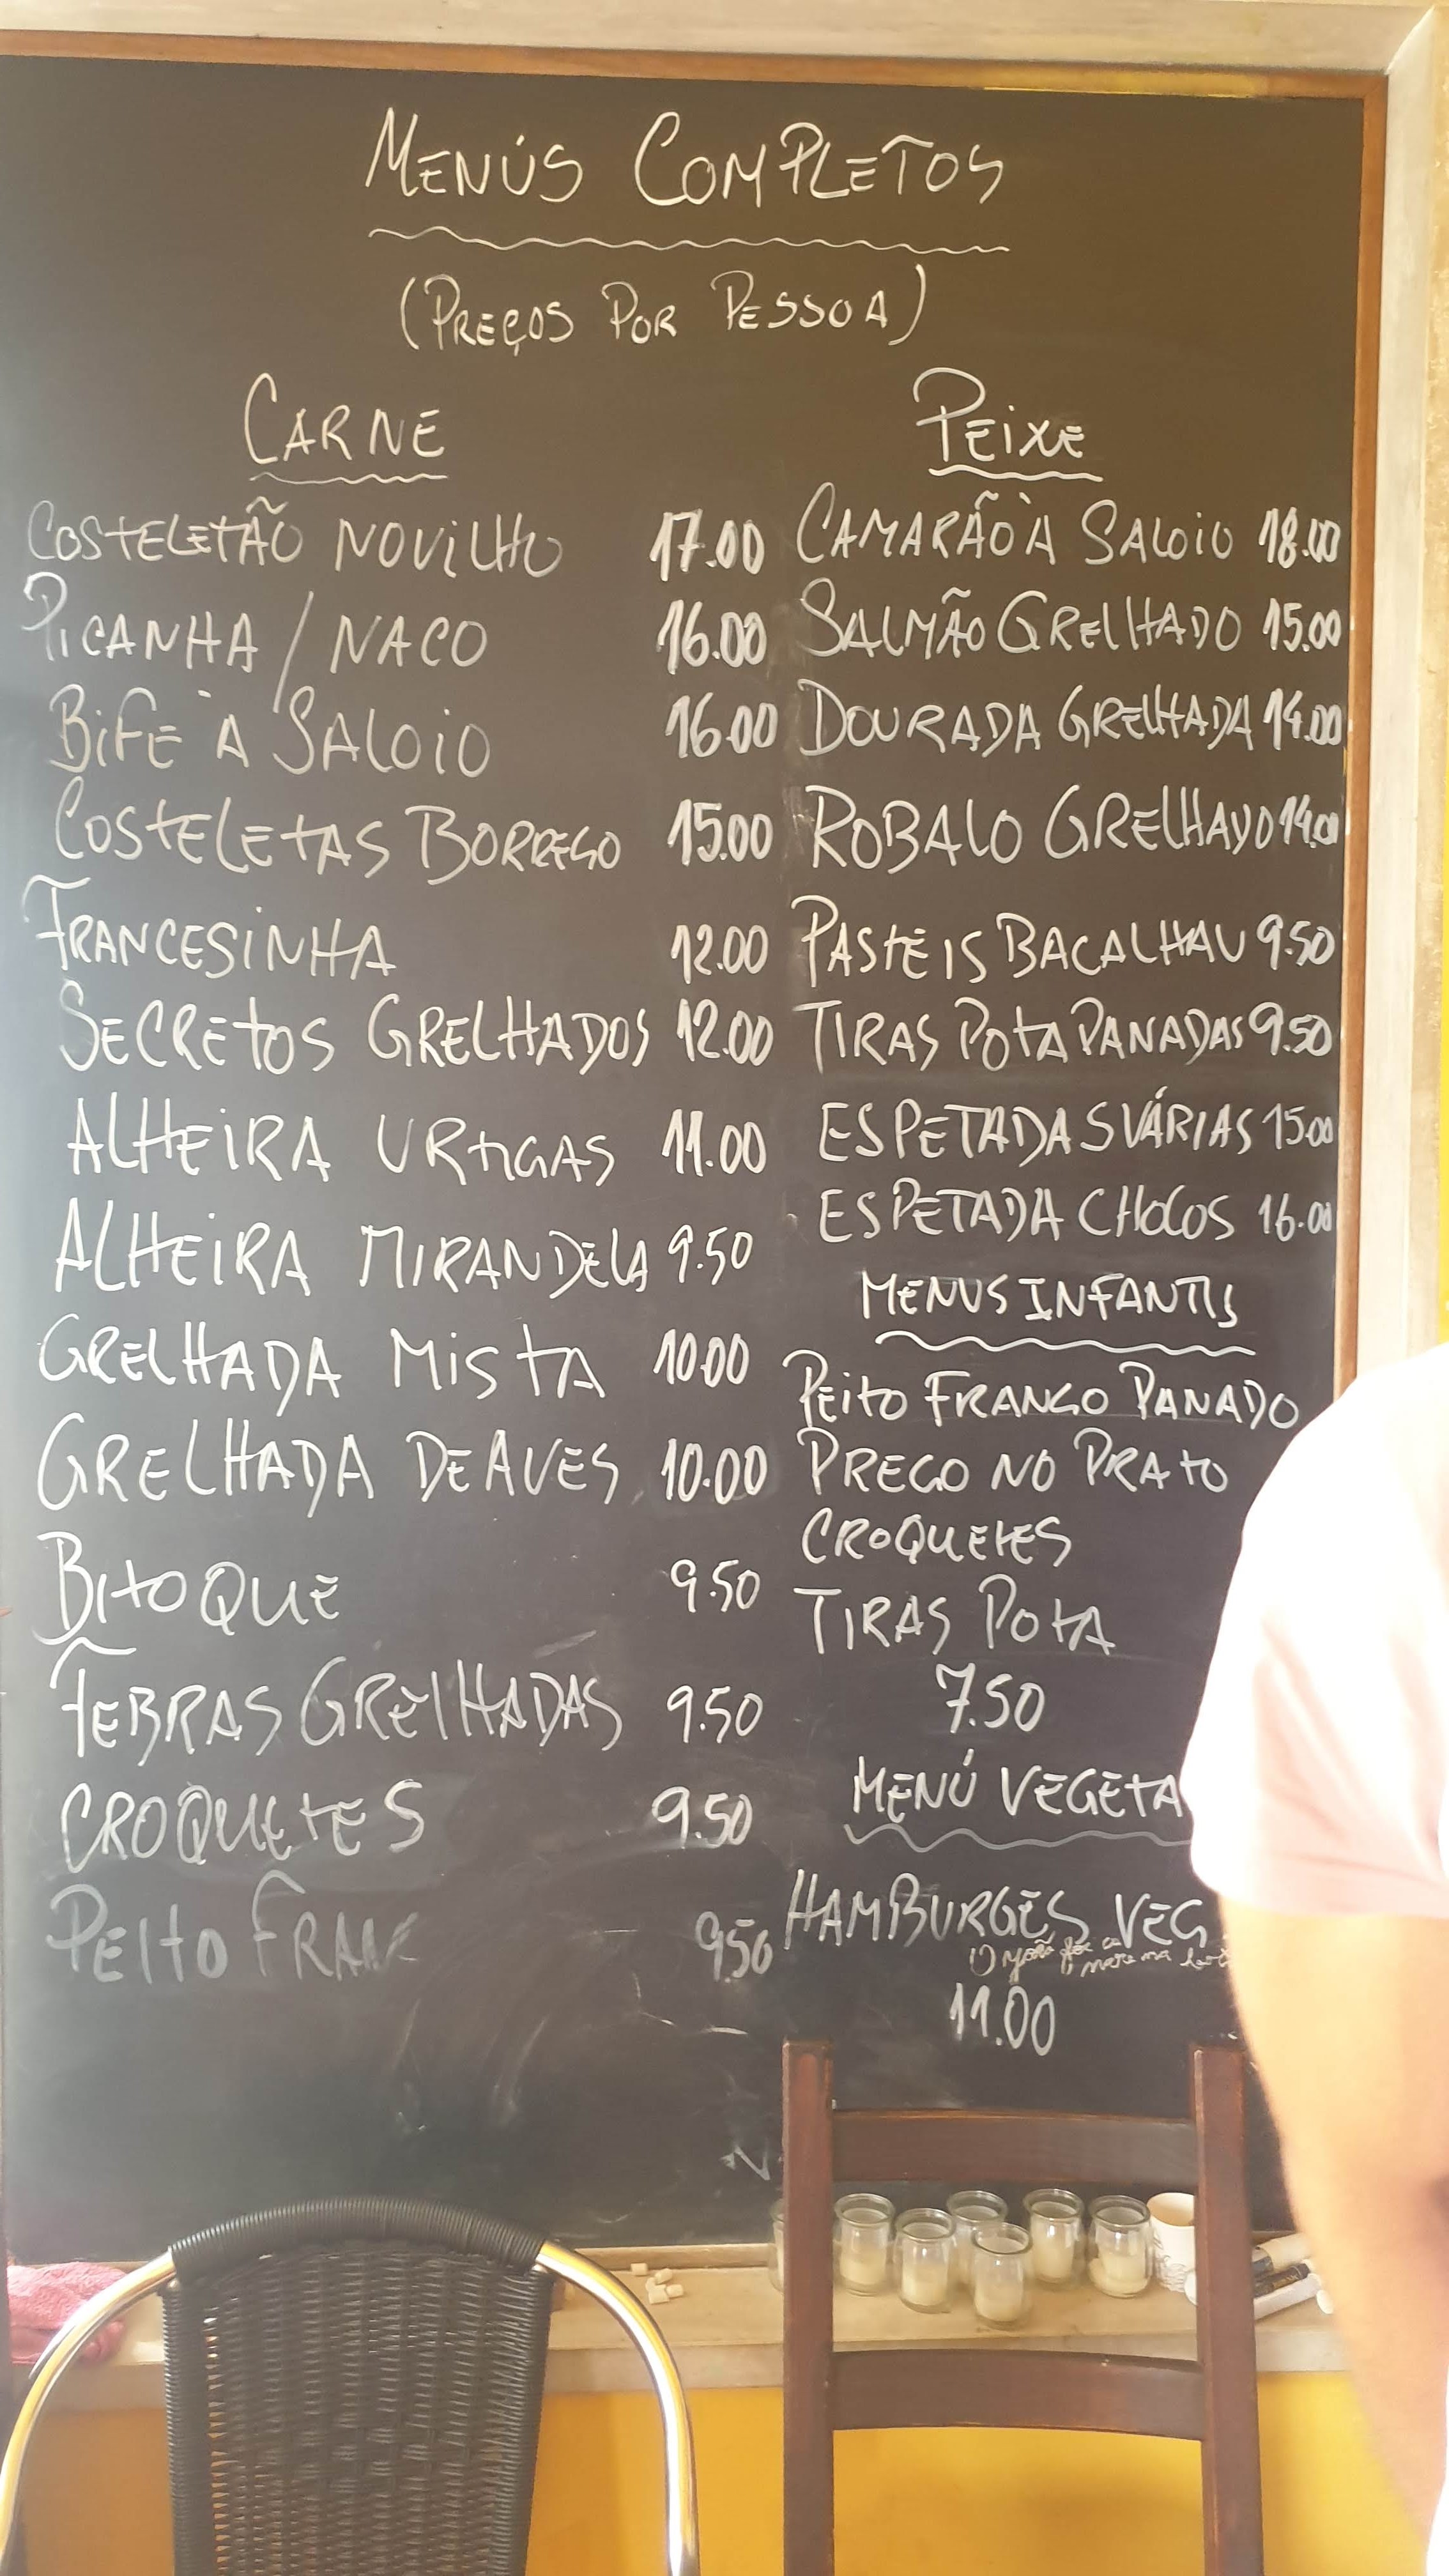 MENÚS COMPLETOS
(PREÇOS POR PESSOA)
CARNE
COSTELETÃO NOVILHO 17.00
PICANHA / NACO 16.00
BIFE À SALOIO 16.00
COSTELETAS BORREGO 15.00
FRANCESINHA 12.00
SECRETOS GRELHADOS 12.00
ALHEIRA URTIGAS 11.00
ALHEIRA MIRANDELA 9.50
GRELHADA MISTA 10.00
GRELHADA DE AVES 10.00
BITOQUE 9.50
FEBRAS GRELHADAS 9.50
CROQUETES 9.50
PEITO FRAN 9.50
PEIXE
CAMARÃO À SALOIO 18.00
SALMÃO GRELHADO 15.00
DOURADA GRELHADA 14.00
ROBALO GRELHADO 14.00
PASTÉIS BACALHAU 9.50
TIRAS POTA PANADAS 9.50
ESPETADAS VÁRIAS 15.00
ESPETADA CHOCOS 16.00
MENUS INFANTIS
PEITO FRANGO PANADO
PREGO NO PRATO
CROQUETES
TIRAS POTA
7.50
MENÚ VEGETA
HAMBURGES VEG
11.00